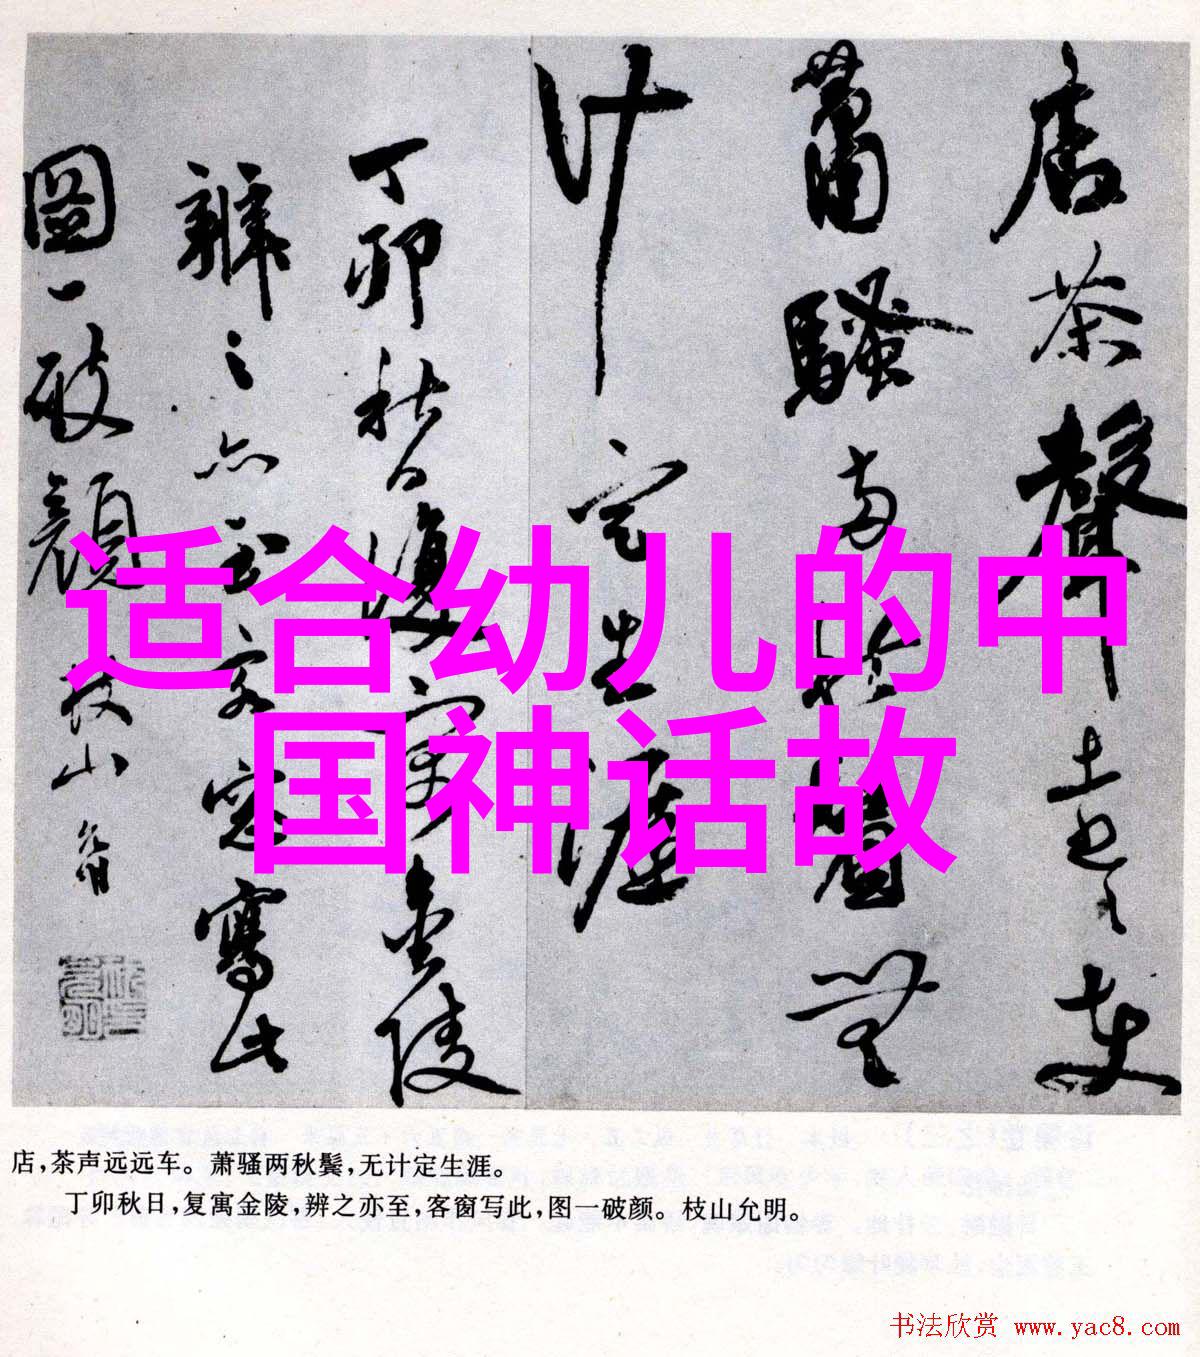 店茶聲遠遠車
蕭騷兩秋鬢無
計定生涯
丁卯秋日復寓金陵
辨之亦至客窓寫此
圖一破顏 枝山允明
适合幼儿的中
国神话故
店，茶声远远车。萧骚两秋鬓，无计定生涯。
丁卯秋日，复寓金陵，辨之亦至，客窗写此，图一破颜。枝山允明。
书法欣赏 www.yac8.com